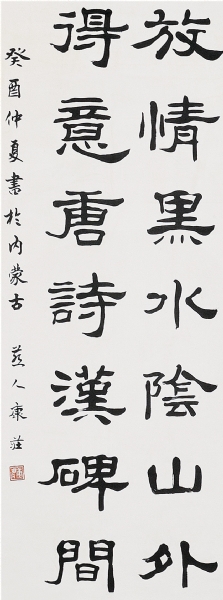 放情黑水陰山外
得意唐詩漢碑間
癸酉仲夏書於內蒙古 燕人康莊